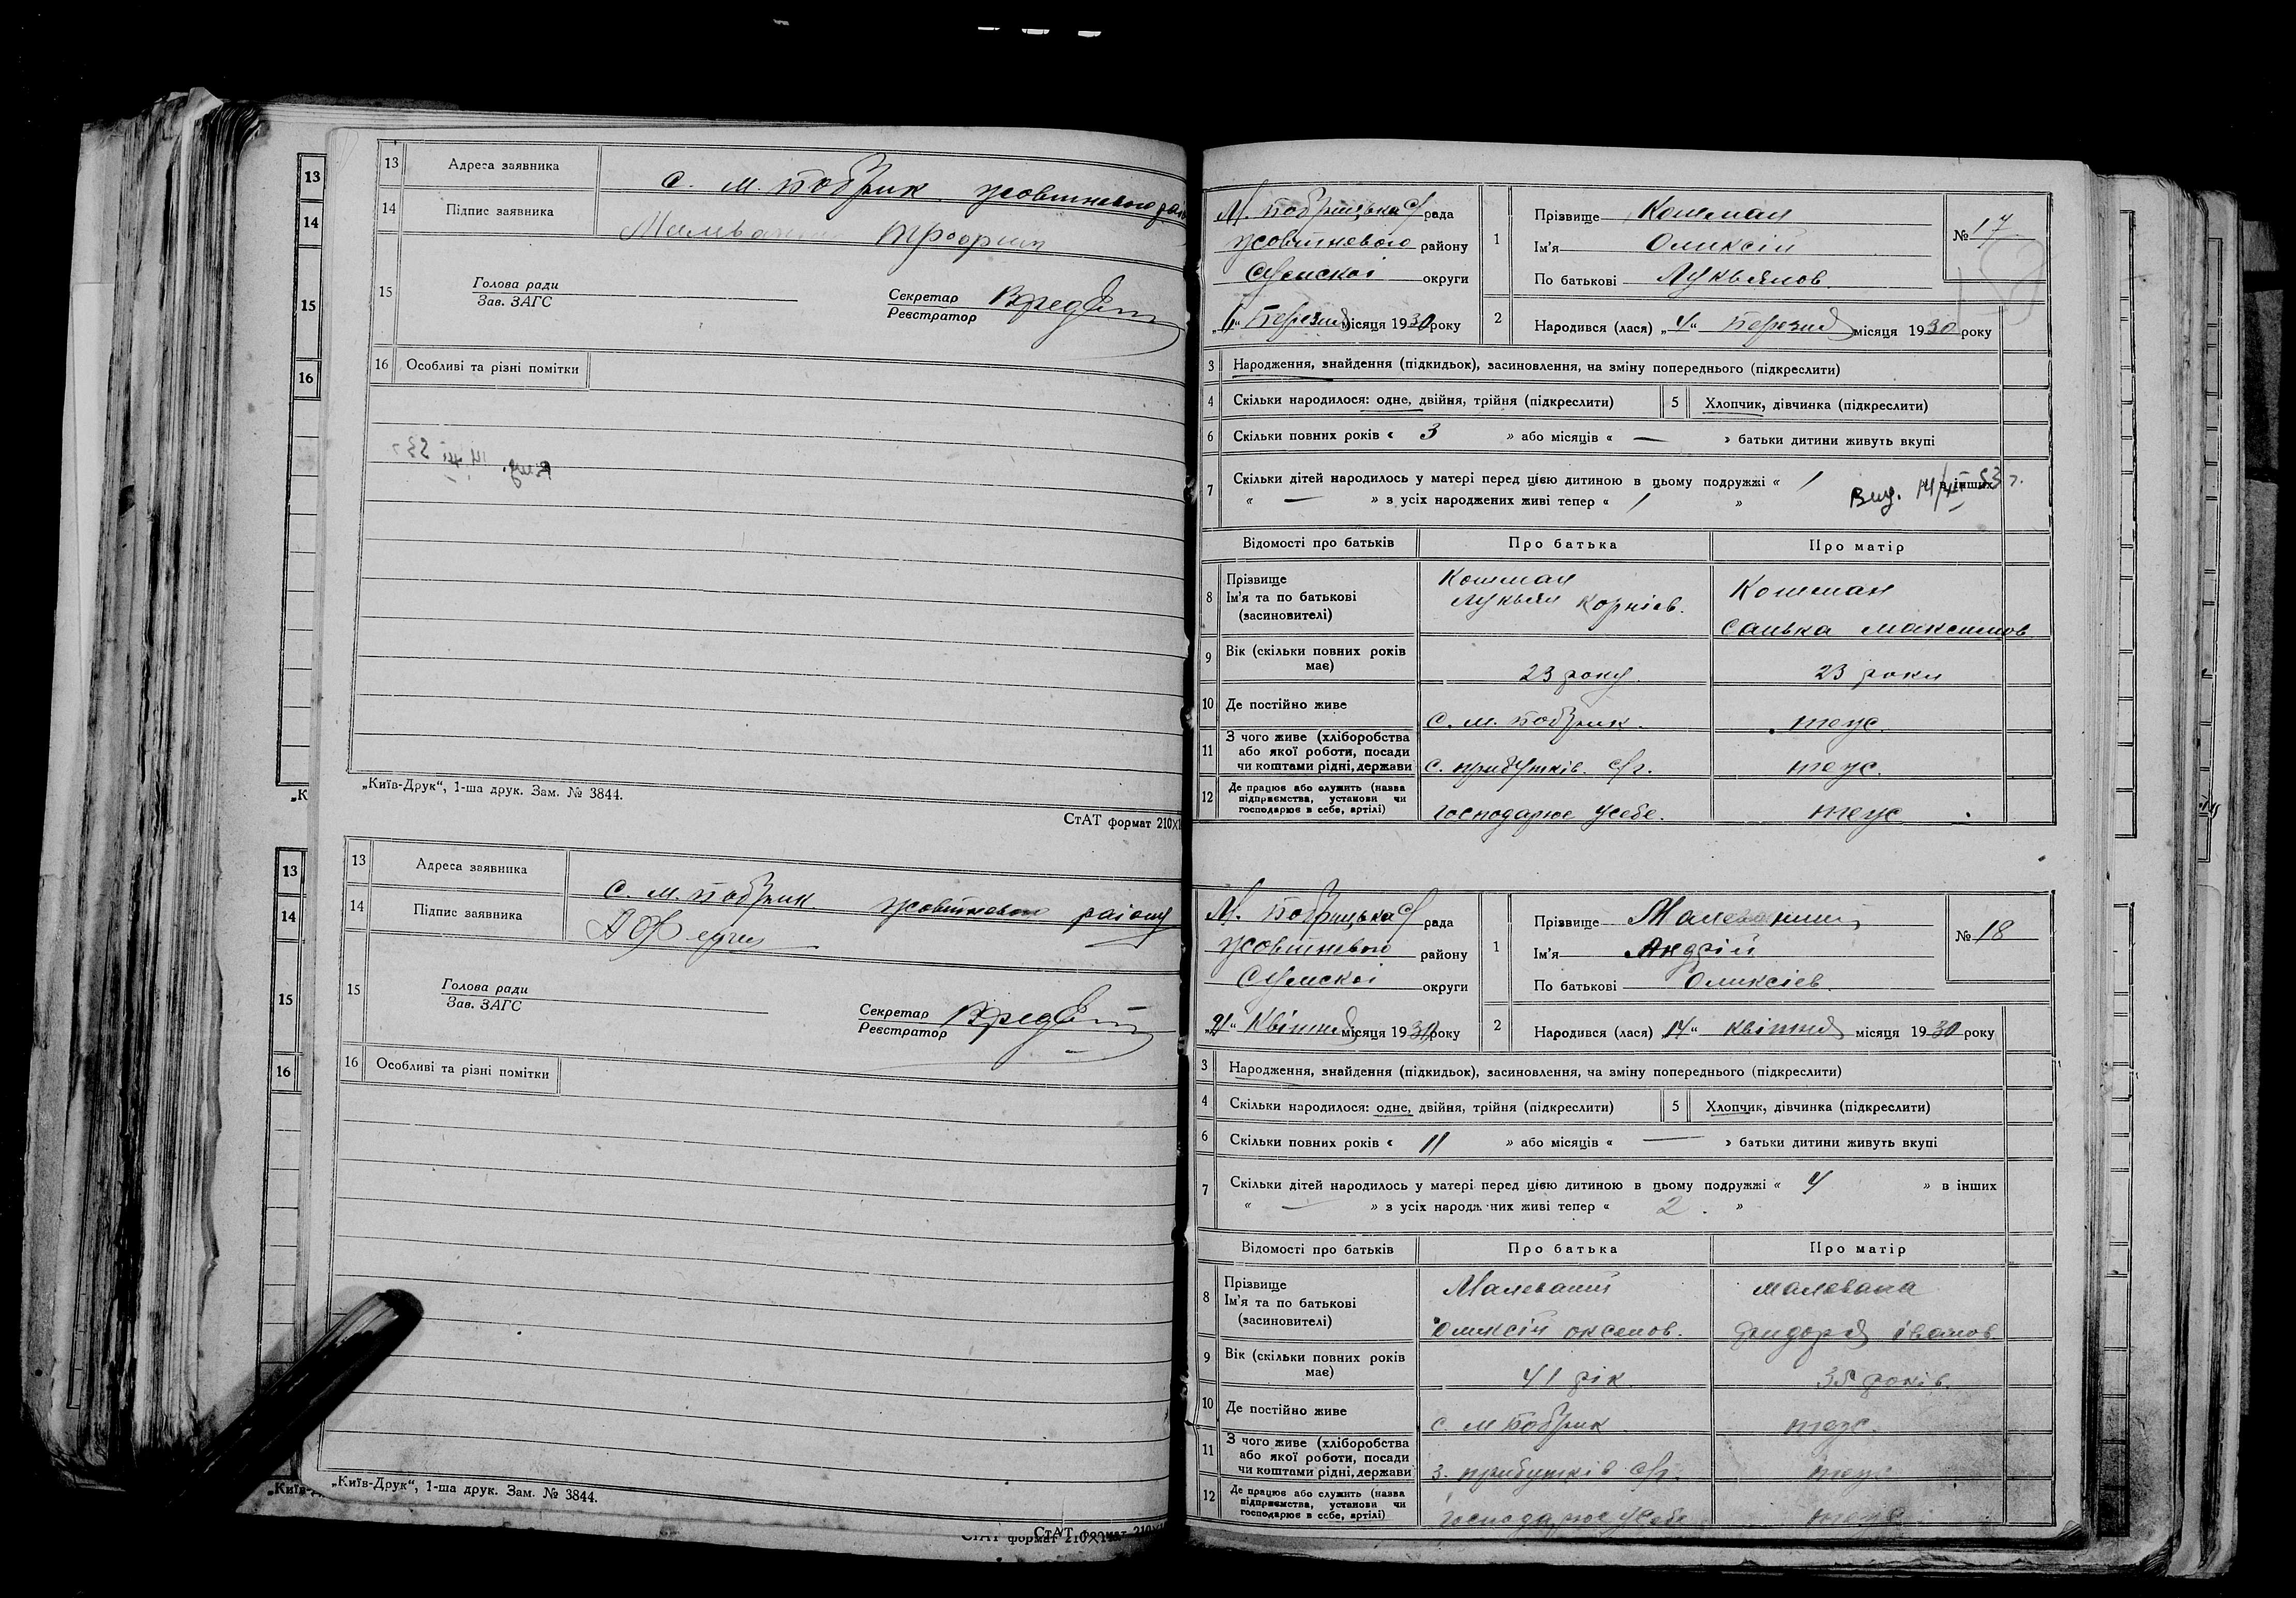 13 Адреса заявника с. м. Бобрик жовтневого рай
14 Підпис заявника
15 Голова ради
Зав. ЗАГС
Секретар
Реєстратор
16 Особливі та різні помітки
„Київ-Друк“, 1-ша друк. Зам. № 3844.
СтАТ формат 210×1
13 Адреса заявника с. м. Бобрик жовтневого району
14 Підпис заявника
15 Голова ради
Зав. ЗАГС
Секретар
Реєстратор
16 Особливі та різні помітки
„Київ-Друк“, 1-ша друк. Зам. № 3844.
СтАТ формат 210×1
М. Бобрицька с/рада
Жовтневого району
Сумскої округи
„6“ Березня місяця 1930 року
1 Прізвище Кошман
Ім'я Оликсій
По батькові Лукьянов.
№ 17
2 Народився (лася) „4“ Березня місяця 1930 року
3 Народження, знайдення (підкидьок), засиновлення, на зміну попереднього (підкреслити)
4 Скільки народилося: одне, двійня, трійня (підкреслити)
5 Хлопчик, дівчинка (підкреслити)
6 Скільки повних років « 3 » або місяців « — » батьки дитини живуть вкупі
7 Скільки дітей народилось у матері перед цією дитиною в цьому подружжі « 1 » в інших
« — » з усіх народжених живі тепер « 1 »
Відомості про батьків Про батька Про матір
8 Прізвище
Ім'я та по батькові
(засиновителі)
Кошман
Лукьян Корніев.
Кошман
Санька Максимов
9 Вік (скільки повних років має) 23 року. 23 роки
10 Де постійно живе с. м. Бобрик. теус.
11 З чого живе (хліборобства
або якої роботи, посади
чи коштами рідні, держави с. прибутків. с/г. теус.
12 Де працює або служить (назва
підприємства, установи чи
господарює в себе, артілі) господарює усебе. теус
М. Бобрицька с/рада
Жовтневого району
Сумскої округи
„21“ Квітня місяця 1930 року
1 Прізвище Малеваний
Ім'я Андрій
По батькові Оликсіев.
№ 18
2 Народився (лася) „14“ квітня місяця 1930 року
3 Народження, знайдення (підкидьок), засиновлення, на зміну попереднього (підкреслити)
4 Скільки народилося: одне, двійня, трійня (підкреслити)
5 Хлопчик, дівчинка (підкреслити)
6 Скільки повних років « 11 » або місяців « — » батьки дитини живуть вкупі
7 Скільки дітей народилось у матері перед цією дитиною в цьому подружжі « 4 » в інших
« — » з усіх народжених живі тепер « 2 . »
Відомості про батьків Про батька Про матір
8 Прізвище
Ім'я та по батькові
(засиновителі)
Малеваний
Оликсій
Малевана
іванов
9 Вік (скільки повних років має) 41 рік. 35 років.
10 Де постійно живе с. м Бобрик теус.
11 З чого живе (хліборобства
або якої роботи, посади
чи коштами рідні, держави з. прибутків с/г. теус
12 Де працює або служить (назва
підприємства, установи чи
господарює в себе, артілі) господарює усебе теус